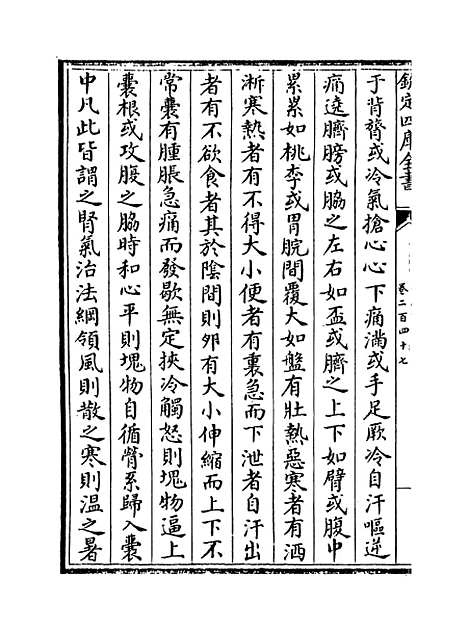 欽定四庫全書
卷二百四十七
于背膂或冷氣搶心心下痛滿或手足厥冷自汗嘔逆
痛遶臍膀或脇之左右如盃或臍之上下如臂或腹中
累累如桃李或胃脘間覆大如盤有壯熱惡寒者有洒
淅寒熱者有不得大小便者有裏急而下泄者自汗出
者有不欲食者其於陰間則夘有大小伸縮而上下不
常囊有腫脹急痛而發歇無定挾冷觸怒則塊物逼上
囊根或攻腹之脇時和心平則塊物自循膋系歸入囊
中凡此皆謂之腎氣治法綱領風則散之寒則温之暑